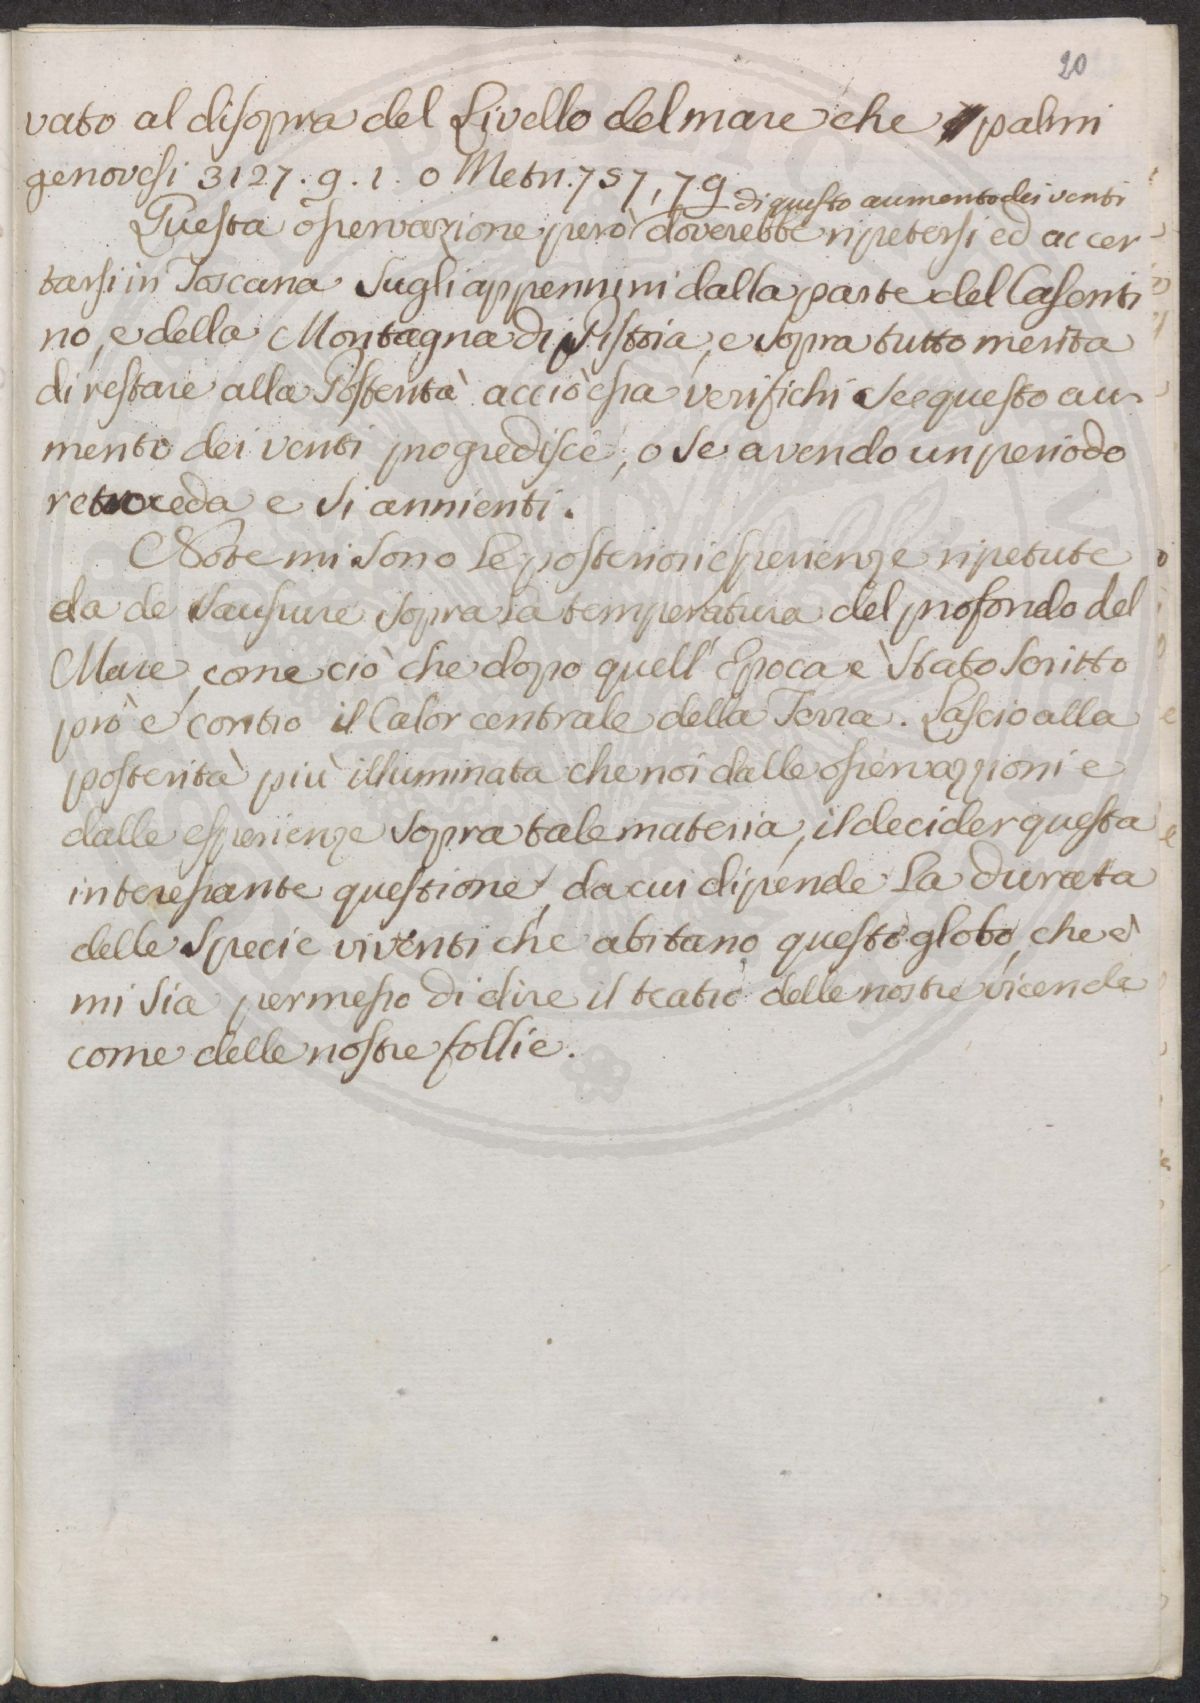 20
vato al disopra del Livello del mare che palmi
genovesi 3127. 9. 1. o Metri. 757, 79
di questo aumento dei venti
Questa osservazione però doverebbe ripetersi ed accer
tarsi in Toscana sugli appennini dalla parte del Casenti
no, e della Montagna di Pistoia, e sopra tutto merita
di restare alla Posterità acciò essa verifichi se questo au-
mento dei venti progredisce, o se avendo un periodo
retroceda e si annienti.
Note mi sono le posteriori esperienze ripetute
da de Sausure sopra la temperatura del profondo del
Mare, come ciò che dopo quell' Epoca è stato scritto
prò e contro il Calor centrale della Terra. Lascio alla
posterità più illuminata che noi dalle osservazzioni e
dalle esperienze sopra tale materia, il decider questa
interessante questione, da cui dipende la durata
delle specie viventi che abitano questo globo, che è
mi sia permesso di dire il teatro delle nostre vicende
come delle nostre follie.